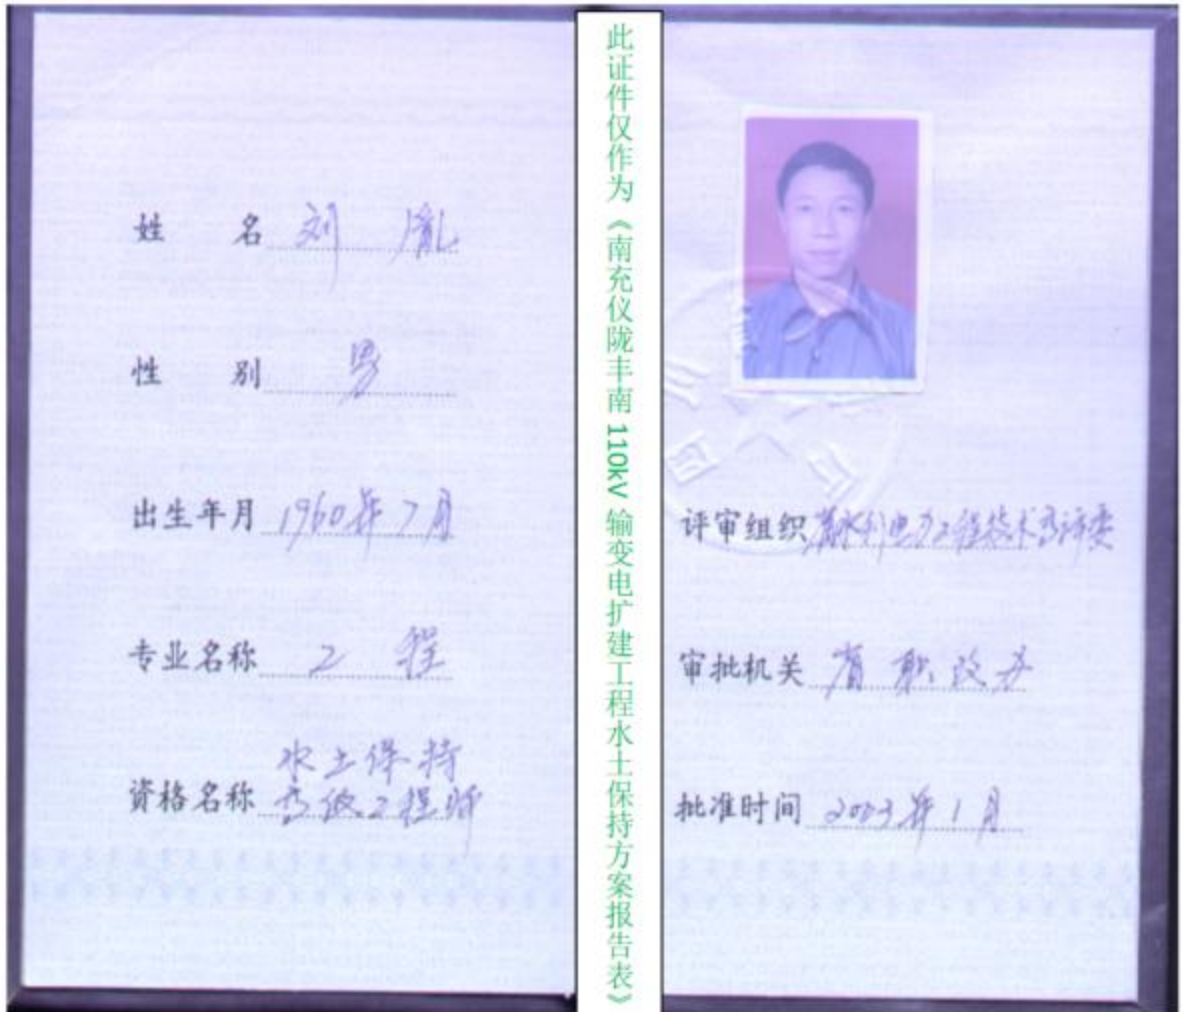 姓 名 刘 胤
性 别 男
出生年月 1960年7月
专业名称 工 程
资格名称 水土保持
高级工程师
此证件仅作为《南充仪陇丰南110kV输变电扩建工程水土保持方案报告表》
评审组织 省水利电力工程技术高评委
审批机关 省职改办
批准时间 2003年1月